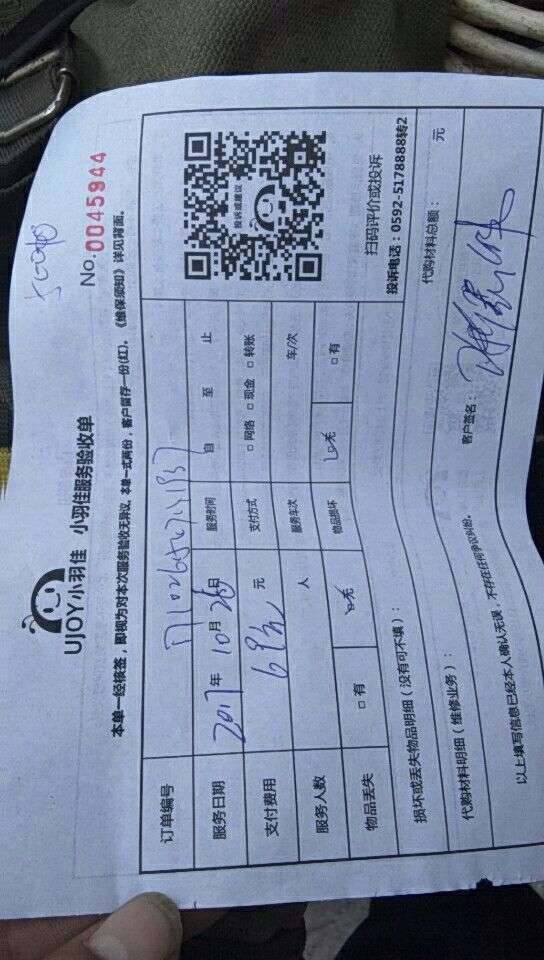 UJOY小羽佳 小羽佳服务验收单
No.0045944
本单一经核签，即视为对本次服务验收无异议，本单一式两份，客户留存一份(红)，《维保须知》详见背面。
订单编号
服务日期 2017年10月26日 服务时间 自 至 止
支付费用 69元 元 支付方式 □网络 □现金 □转账
服务人数 人 服务车次 车/次
物品丢失 □有 □无 物品损坏 □无 □有
投诉或建议
扫码评价或投诉
投诉电话：0592-5178888转2
损坏或丢失物品明细（没有可不填）：
代购材料明细（维修业务）： 代购材料总额： 元
以上填写信息已经本人确认无误，不存在任何争议纠纷。 客户签名：